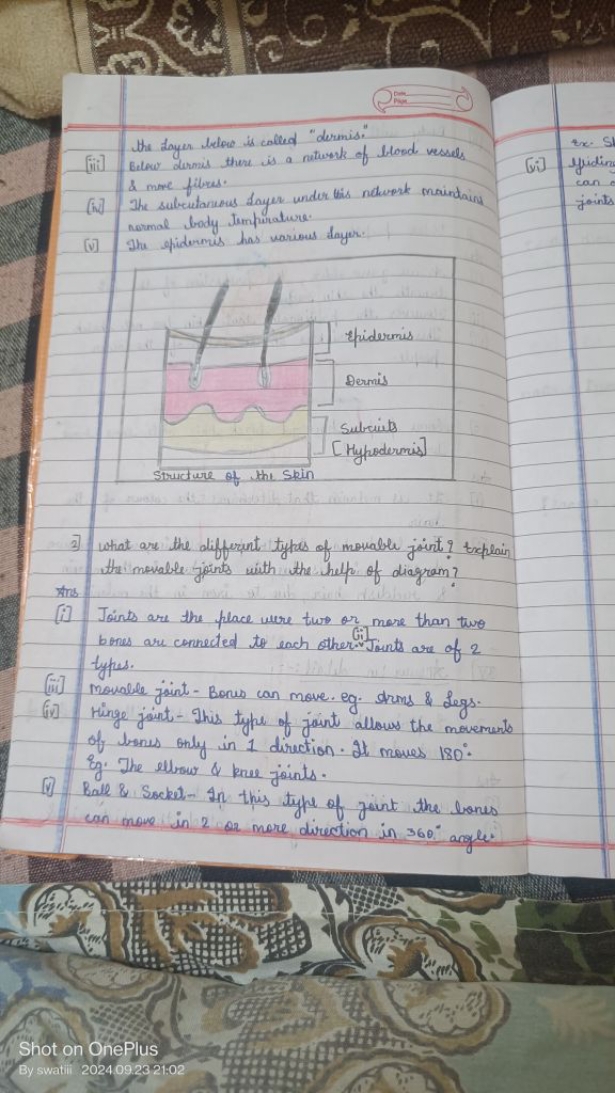 Date
Page
the layer below is called "dermis."
[iii] Below dermis there is a network of blood vessels
& more fibres.
[iv] The subcutaneous layer under this network maintains
normal body temprature.
[v] The epidermis has various layer.
Epidermis
Dermis
Subcuits
[Hypodermis]
Structure of the Skin
2] what are the different types of movable joint? Explain
the movable joints with the help of diagram?
Ans
[i] Joints are the place were two or more than two
bones are connected to each other. [ii] Joints are of 2
types.
[iii] Movable joint - Bones can move. eg. Arms & Legs.
[iv] Hinge joint - This type of joint allows the movements
of bones only in 1 direction. It moves 180°.
Eg. The elbow & knee joints.
[v] Ball & Socket - In this type of joint the bones
can move in 2 or more direction in 360° angle.
Ex.
[vi] Gliding
can
joints
Shot on OnePlus
By swatiii 2024.09.23 21:02